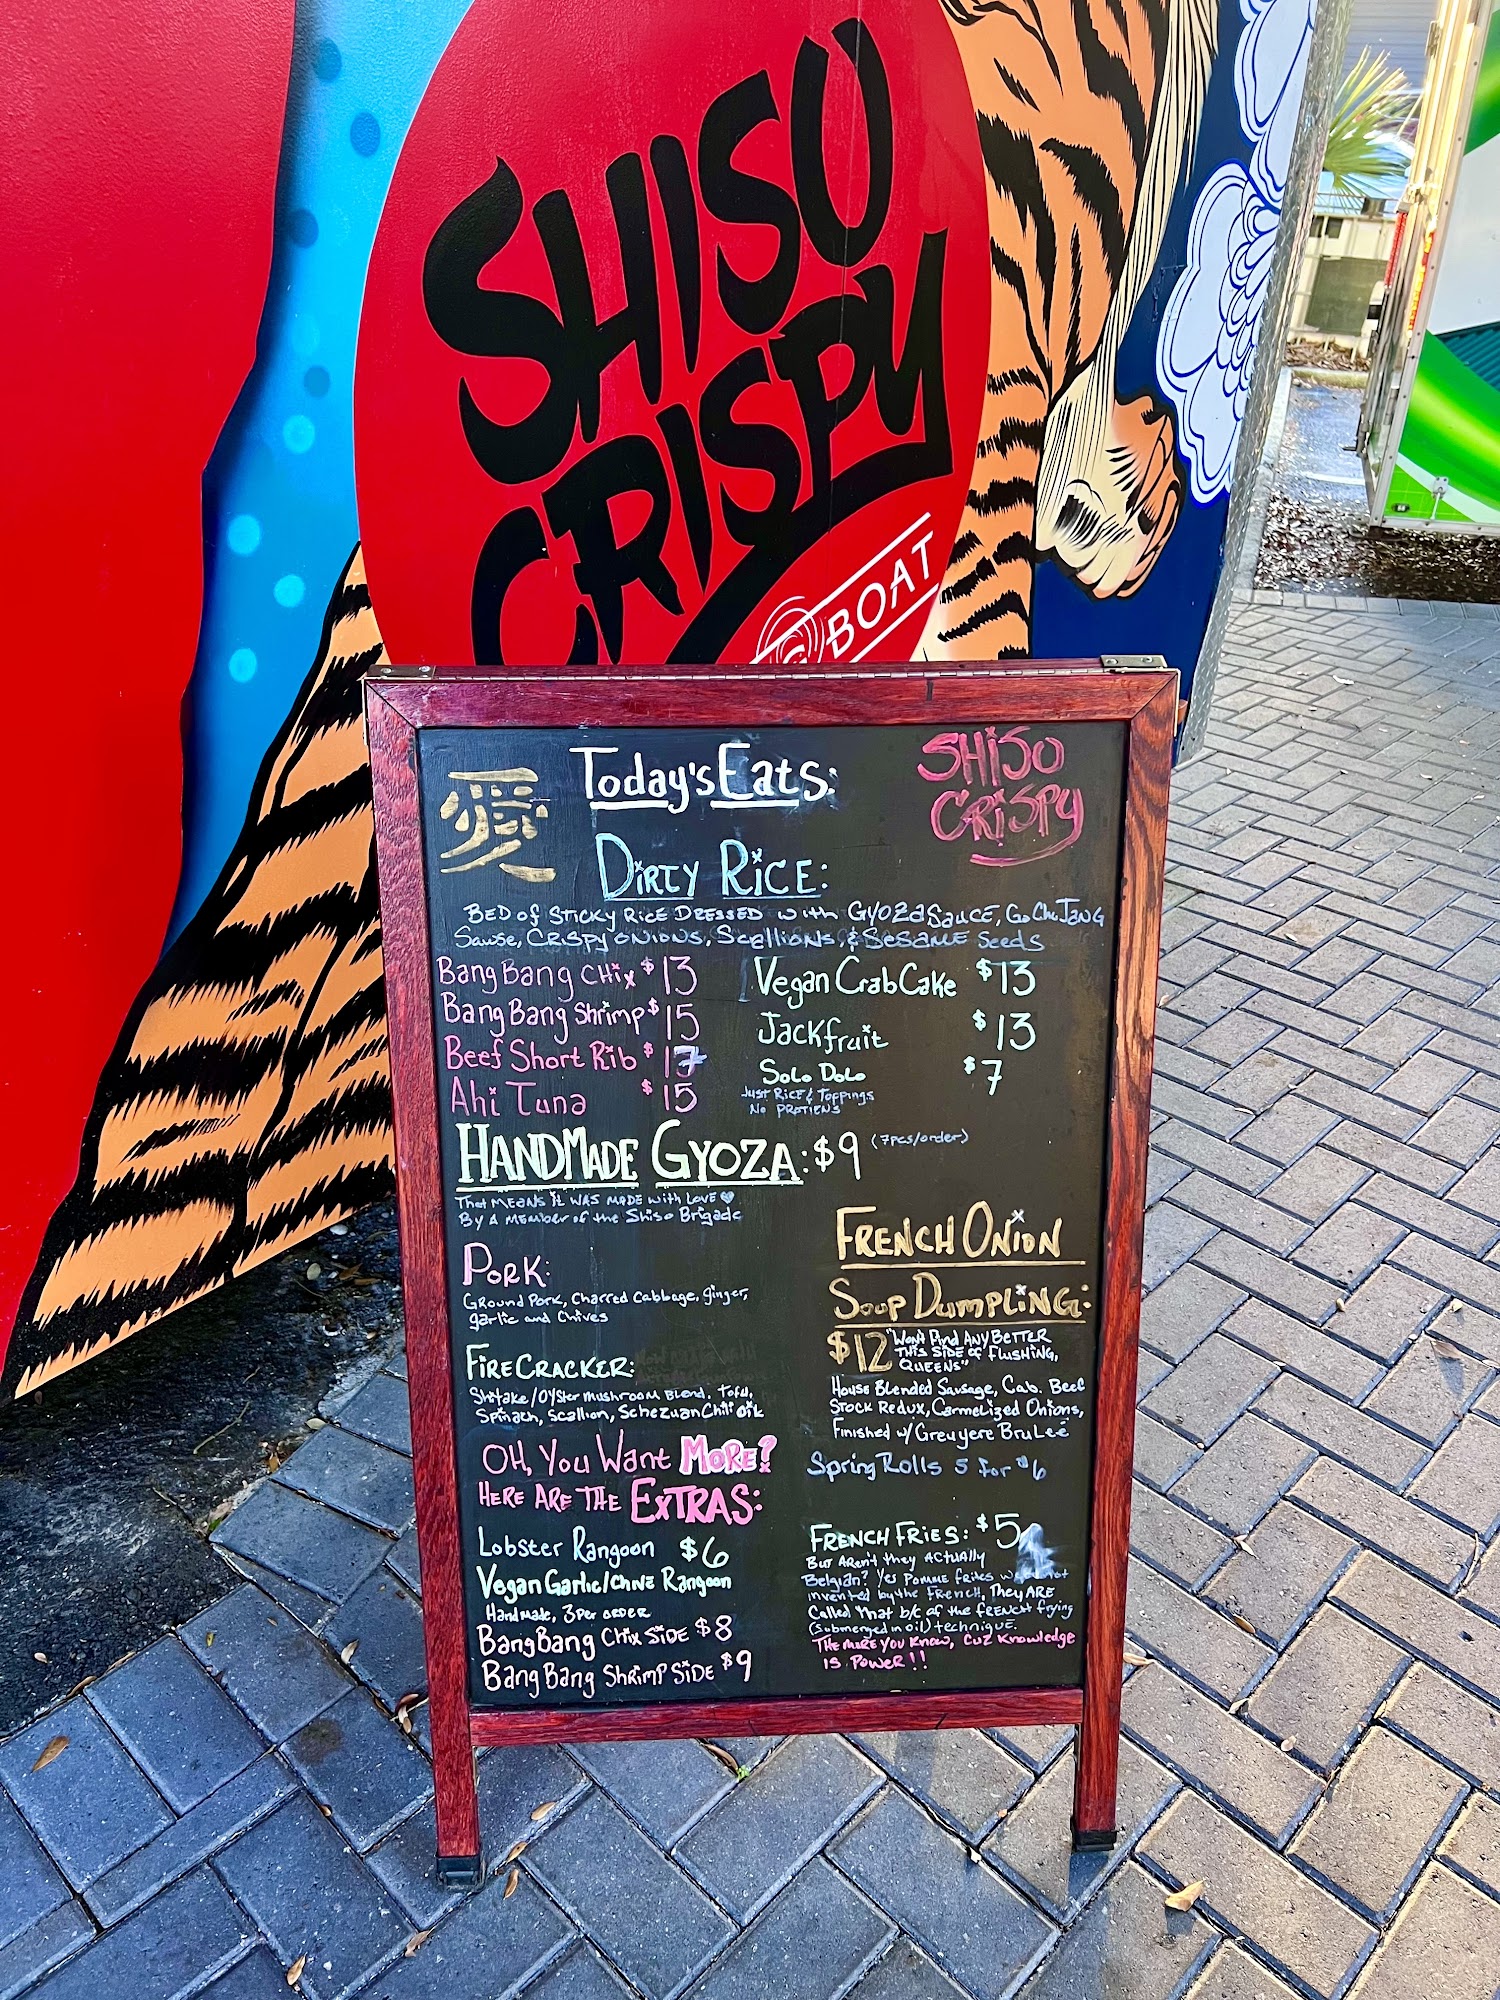 SHISU
CRISPY
BOAT
愛
Today's Eats:
SHiSO
CRiSPy
DiRTY RiCE:
BED of STicky RicE DRESSED with GYOZA SaucE, GoChuJang
Sawse, CRiSPy ONiONS, Scallions, & SESAME Seeds
Bang Bang CHix $13
Bang Bang Shrimp $15
Beef Short Rib $17
Ahi Tuna $15
Vegan Crab Cake $13
Jackfruit $13
SoLo DoLo $7
Just RicE & Toppings
No PROTIENS
HANDMADE GYOZA: $9 (7pcs/order)
That MEANS it WAS MADE with LOVE
By A MEMber of the Shiso Brigade
PORK:
GROUND PORK, Charred Cabbage, ginger,
garlic and Chives
FiRE CRACKER:
Shitake/Oyster mushrooM BLend, Tofu,
Spinach, Scallion, Schezuan Chili oil
FRENCH ONiON
Soup DUMPLiNG:
$12 "Won't Find ANY BETTER
THIS SIDE of FLUSHiNG,
QUEENS"
House Blended Sausage, Cab. Beef
Stock Redux, Carmelized Onions,
Finished w/ Greuyere BruLeé
Spring Rolls 5 for $6
OH, You Want MoRE?
HERE ARE THE EXTRAS:
Lobster Rangoon $6
Vegan Garlic/Chive Rangoon
Handmade, 3 per order
Bang Bang Chix SiDE $8
Bang Bang Shrimp SiDE $9
FRENCH FRiES: $5
But Aren't they ACTUAlly
Belgian? Yes Pomme frites were not
invented by the French, They ARE
Called that b/c of the FRENCH frying
(Submerged in oil) technique.
THE MORE You Know, CUZ Knowledge
iS PowER!!